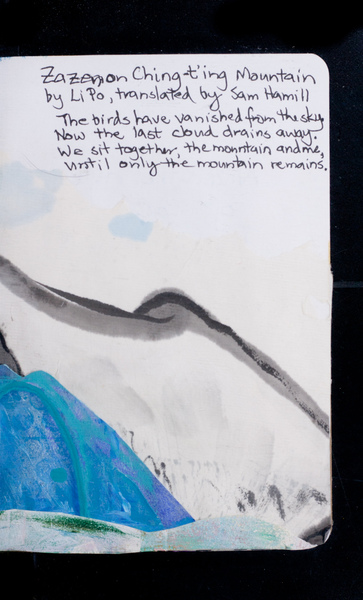 Zazen on Ching-t'ing Mountain
by Li Po, translated by Sam Hamill
The birds have vanished from the sky.
Now the last cloud drains away.
We sit together, the mountain and me,
until only the mountain remains.